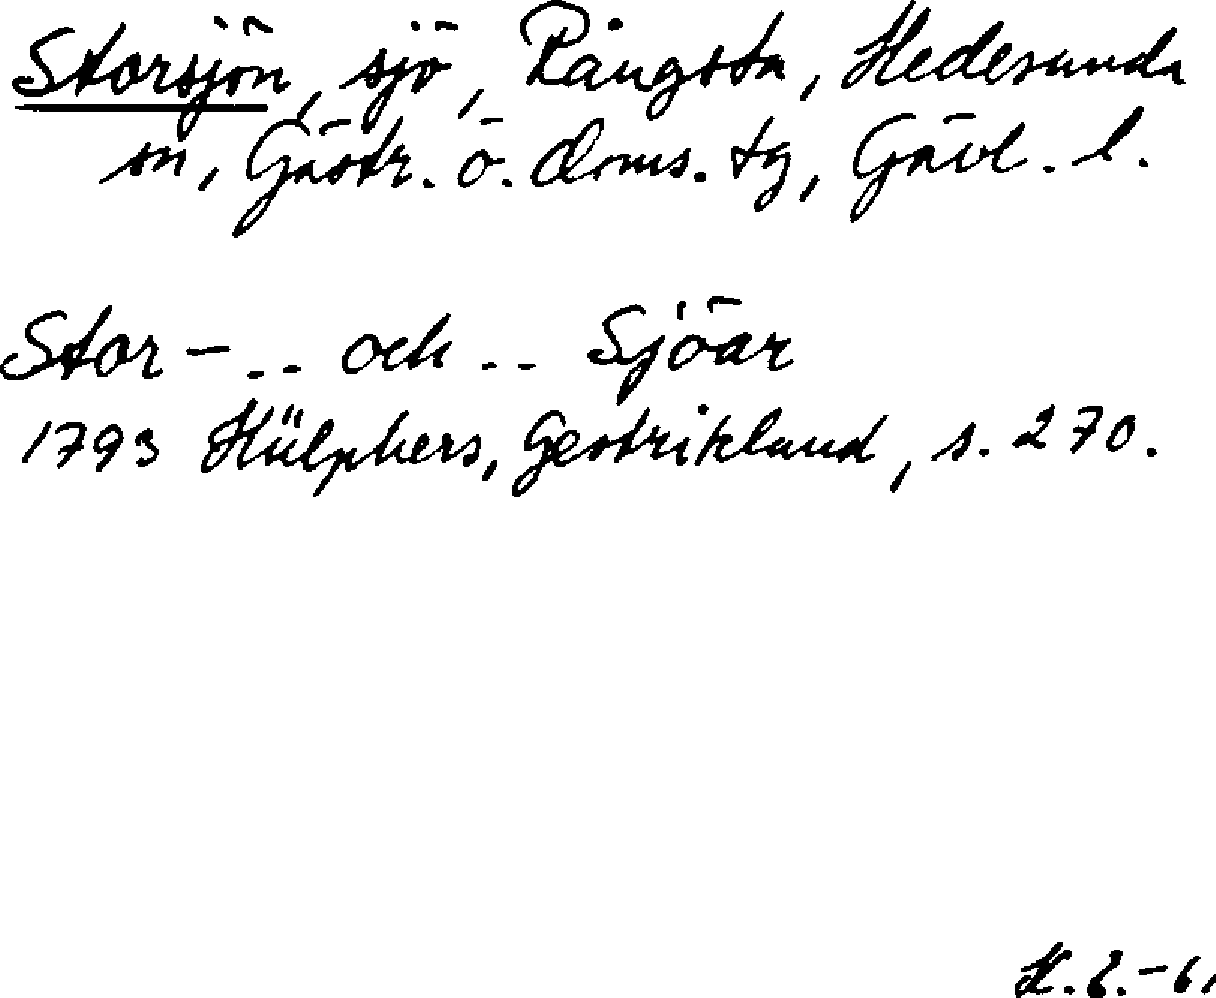 Storsjön, sjö, Rångsta, Hedesunda
sn, Gästr. ö. doms. tg, Gävl. l.
Stor - .. och .. Sjöar
1793 Hülphers, Gestrikland, s. 270.
H. E. - 61